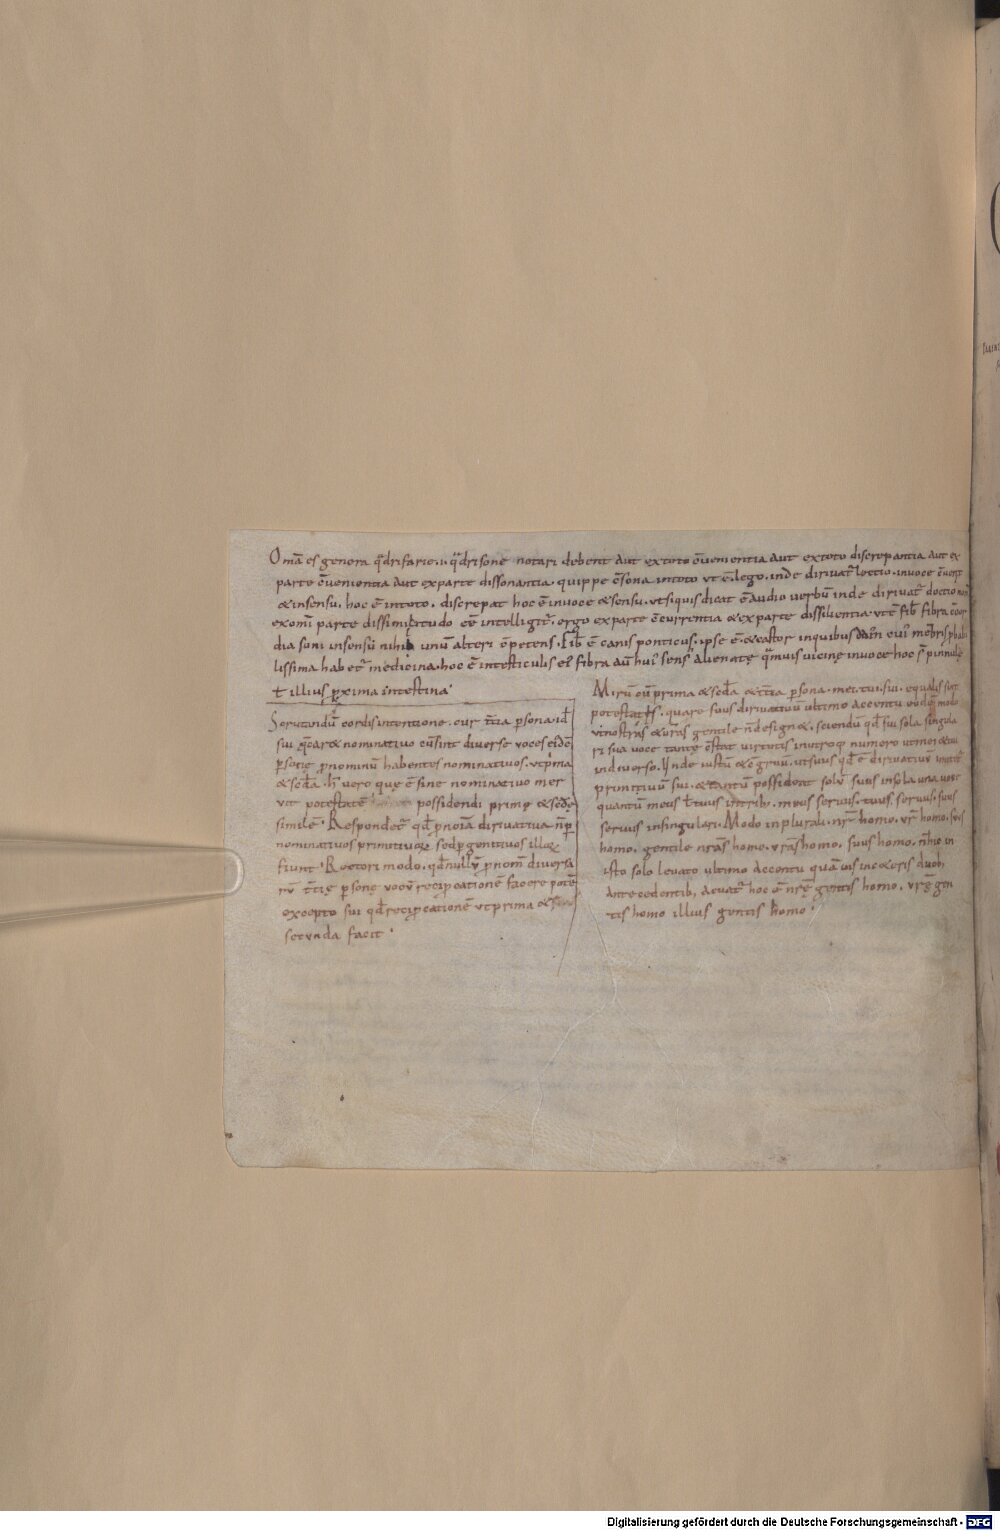 Omā es genera q̄drifarie. ł q̄drisone notari debent Aut extoto c̄uenientia Aut extoto discrepantia Aut ex
parte c̄uenientia Aut exparte dissonantia. quippe c̄sona intoto vt ē lego. inde dirivat̄ lectio. invoce
& insensu. hoc ē intoto. discrepat hoc ē invoce & sensu. vt siquis dicat ē audio verbū inde dirivat̄ doctio
exom̄i parte dissimilitudo eē intelligit̄. ergo exparte c̄currentia & exparte dissilientia. vt ē fib̄ fibra
dia suni insensū nihil unū alteri c̄petens. fib̄ ē canis ponticus. ipse ē & castor inquibus
lissima habet̄ medicina. hoc ē intesticulis ei fibra aū hui sens Alienatę q̄mvis vicinę invoce hoc s̄ pinnulę
ł illius ꝓxima intestina.
Scrutandū cordis intentione. cur t̄tia ꝑsona. id̄
sui q̄ car& nominativo cū sint diverse voces eidē
ꝑsonę ꝓnominū habentes nominativos. vt p̄ma
& sed̄a. h̄ vero quę ē sine nominativo mer
vit potestatē possidendi primę & sedę
similē. Respondet̄ qd̄ ꝓnoīa dirivativa n̄ ꝑ
nominativos primitivoꝝ sed ꝑ genitivos illoꝝ
fiunt. Rectori modo. qd̄ nullū ꝓnom̄ diversa
rū t̄tię ꝑsonę vocū reciꝓcationē facere potē
excepto sui qd̄ reciꝓcationē vt prima &
secunda facit.
Mirū cū prima & sed̄a & t̄tia ꝑsona. mei. tui. sui. equalis sint
potestatis. quare suus dirivativū ultimo accentu modo
vt nostras & vr̄as gentile n̄ design&. sciendū qd̄ sui sola singula
ri sua voce tantę c̄stat virtutis inutroq numero
indiverso. Unde iustū & c̄gruū. ut suus qd̄ ē dirivativū
primitivū sui. & tantū possideat solū suus insola una voce
quantū meus t̄ tuus intrib;. meus servus. tuus servus. suus
servus insingulari. Modo inplurali. nr̄ homo. vr̄ homo. suus
homo. gentile nr̄as homo. vr̄as homo. suus homo. nihilo in
isto solo levato ultimo accentu quā vis inc&eris duob;
antecedentib; Acvat̄ hoc ē nr̄ę gentis homo. vr̄ę gen
tis homo illius gentis homo.
Digitalisierung gefördert durch die Deutsche Forschungsgemeinschaft - DFG